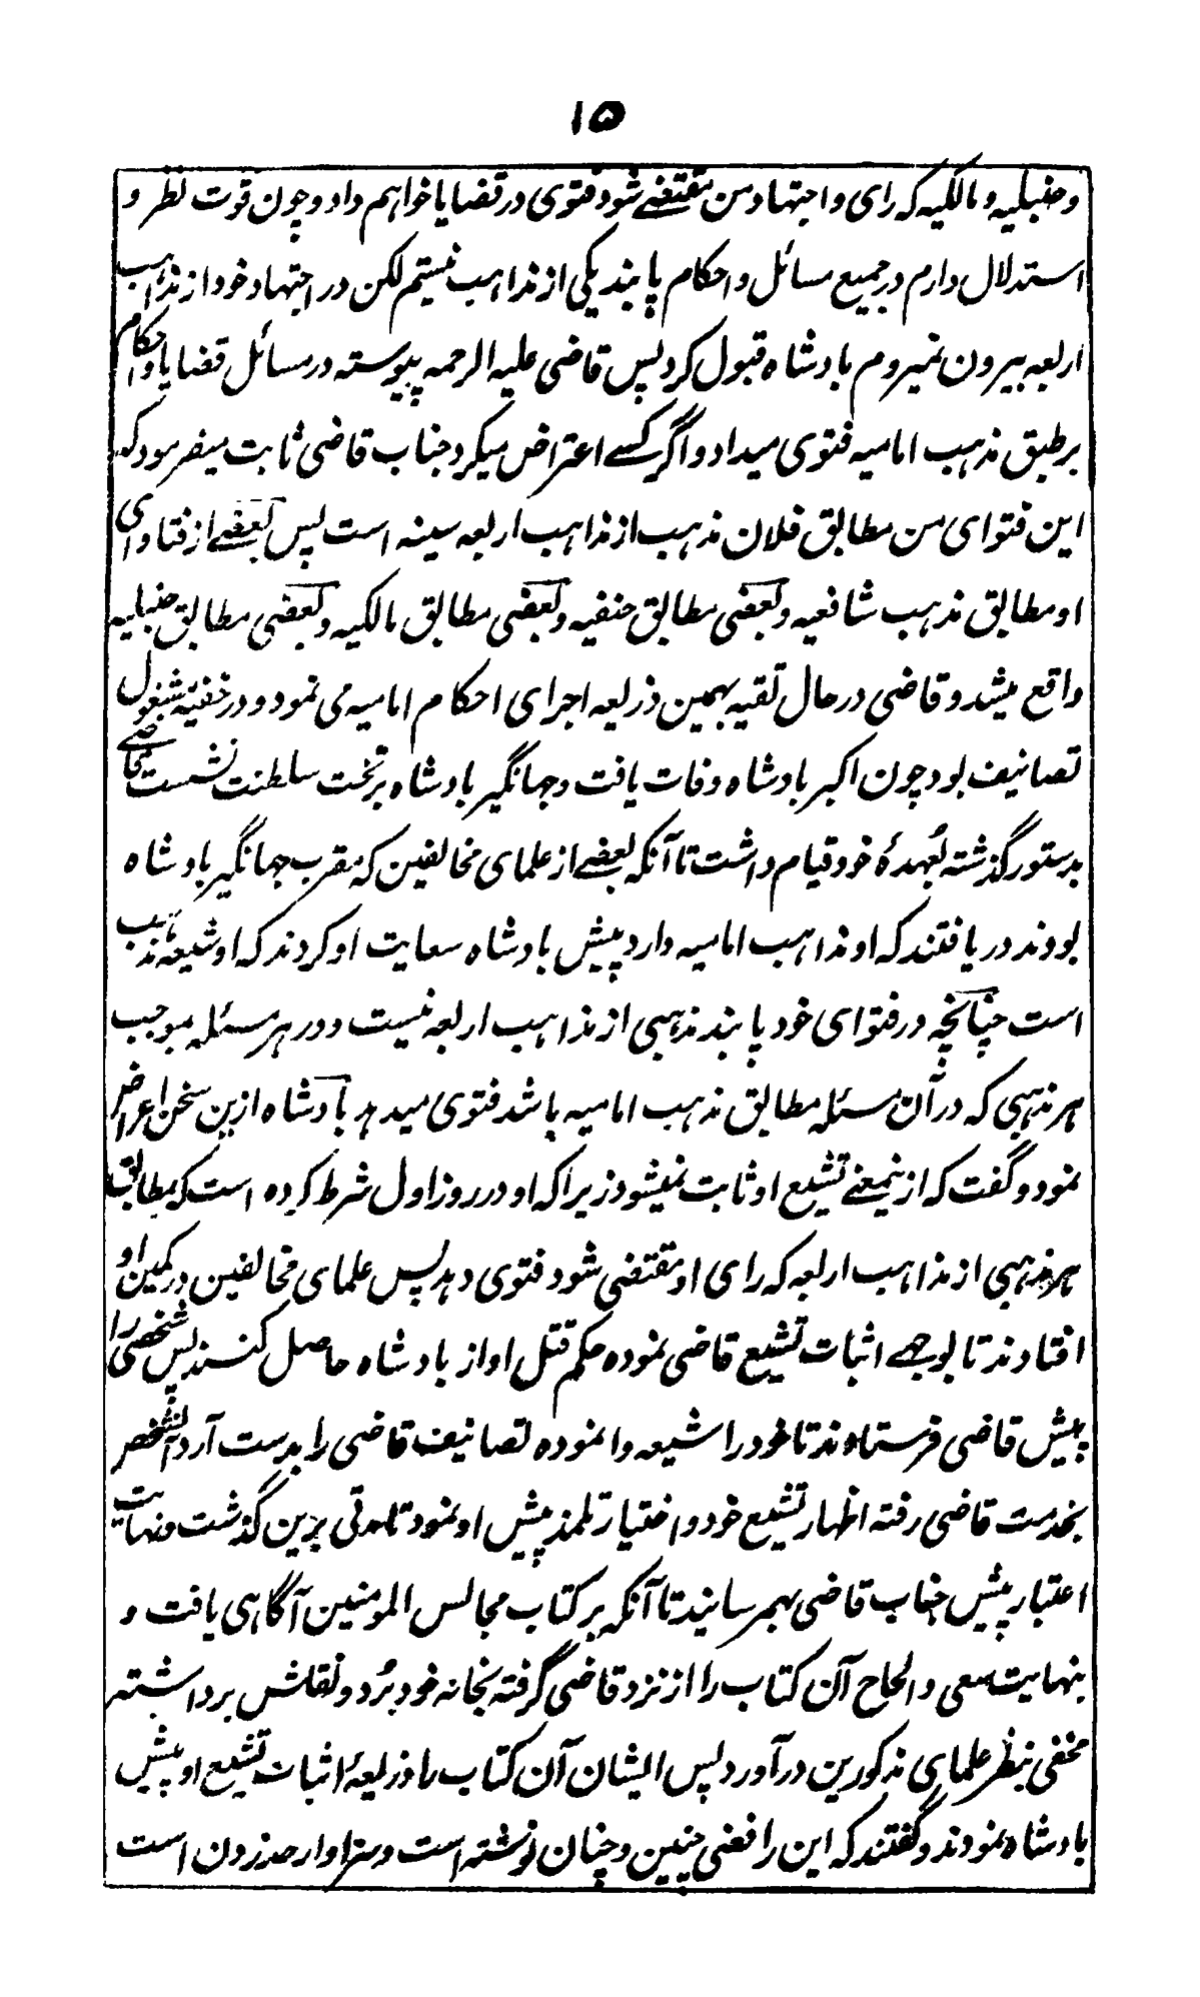 ۱۵
وحنبلیه و مالکیه که رای و اجتهاد من مقتضے شود فتوی در قضایا خواہم داد و چون قوت نظر و
استدلال دارم در جمیع مسائل و احکام پابند یکی از مذاہب نیستم لکن در اجتهاد خود از مذاہب
اربعہ بیرون نمیروم بادشاہ قبول کرد پس قاضی علیہ الرحمہ پیوستہ در مسائل قضایا و احکام
برطبق مذہب امامیہ فتوی میداد و اگر کسے اعتراض میکرد جناب قاضی ثابت میفرمود کہ
این فتوای من مطابق فلان مذہب از مذاہب اربعہ سینہ است پس بعضے از فتاوای
او مطابق مذہب شافعیہ و بعضی مطابق حنفیہ و بعضی مطابق مالکیہ و بعضی مطابق حنبلیہ
واقع میشد و قاضی در حال تقیہ بہمین ذریعہ اجرای احکام امامیہ می نمود و در خفیہ مشغول
تصانیف بود چون اکبر بادشاہ وفات یافت و جہانگیر بادشاہ بر تخت سلطنت نشست قاضے
بدستور گذشتہ بُعہدۂ خود قیام داشت تا آنکہ بعضے از علمای مخالفین کہ مقرب جہانگیر بادشاہ
بودند دریافتند کہ او مذاہب امامیہ دارد پیش بادشاہ سعایت او کردند کہ او شیعہ مذہب
است چنانچہ در فتوای خود پابند مذہبی از مذاہب اربعہ نیست و در ہر مسئلہ بموجب
ہر مذہبی کہ در آن مسئلہ مطابق مذہب امامیہ باشد فتوی میدہد بادشاہ ازین سخن اعراض
نمود و گفت کہ ازینمعنے تشیع او ثابت نمیشود زیرا کہ او در روز اول شرط کردہ است کہ مطابق
ہر مذہبی از مذاہب اربعہ کہ رای او مقتضی شود فتوی دہد پس علمای مخالفین در کمین او
افتادند تا بوجہے اثبات تشیع قاضی نمودہ حکم قتل او از بادشاہ حاصل کنند پس شخصی را
پیش قاضی فرستادند تا خود را شیعہ وانمودہ تصانیف قاضی را بدست آرد آنشخص
بخدمت قاضی رفتہ اظہار تشیع خود و اختیار تلمذ پیش او نمود تا مدتی برین گذشت و نہایت
اعتبار پیش جناب قاضی بہم رسانید تا آنکہ بر کتاب مجالس المومنین آگاہی یافت و
بنہایت سعی و الحاح آن کتاب را از نزد قاضی گرفتہ بخانہ خود بُرد و نقلش برداشتہ
مخفی بنظر علمای مذکورین در آورد پس ایشان آن کتاب را ذریعۂ اثبات تشیع او پیش
بادشاہ نمودند و گفتند کہ این رافضی چنین و چنان نوشتہ است و سزاوار حد زدن است